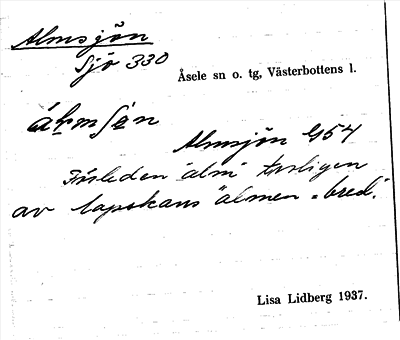 Almsjön
Sjö 330
Åsele sn o. tg, Västerbottens l.
Almsjön G54
Förleden "alm" troligen
av lapskans "älmen = bred".
Lisa Lidberg 1937.